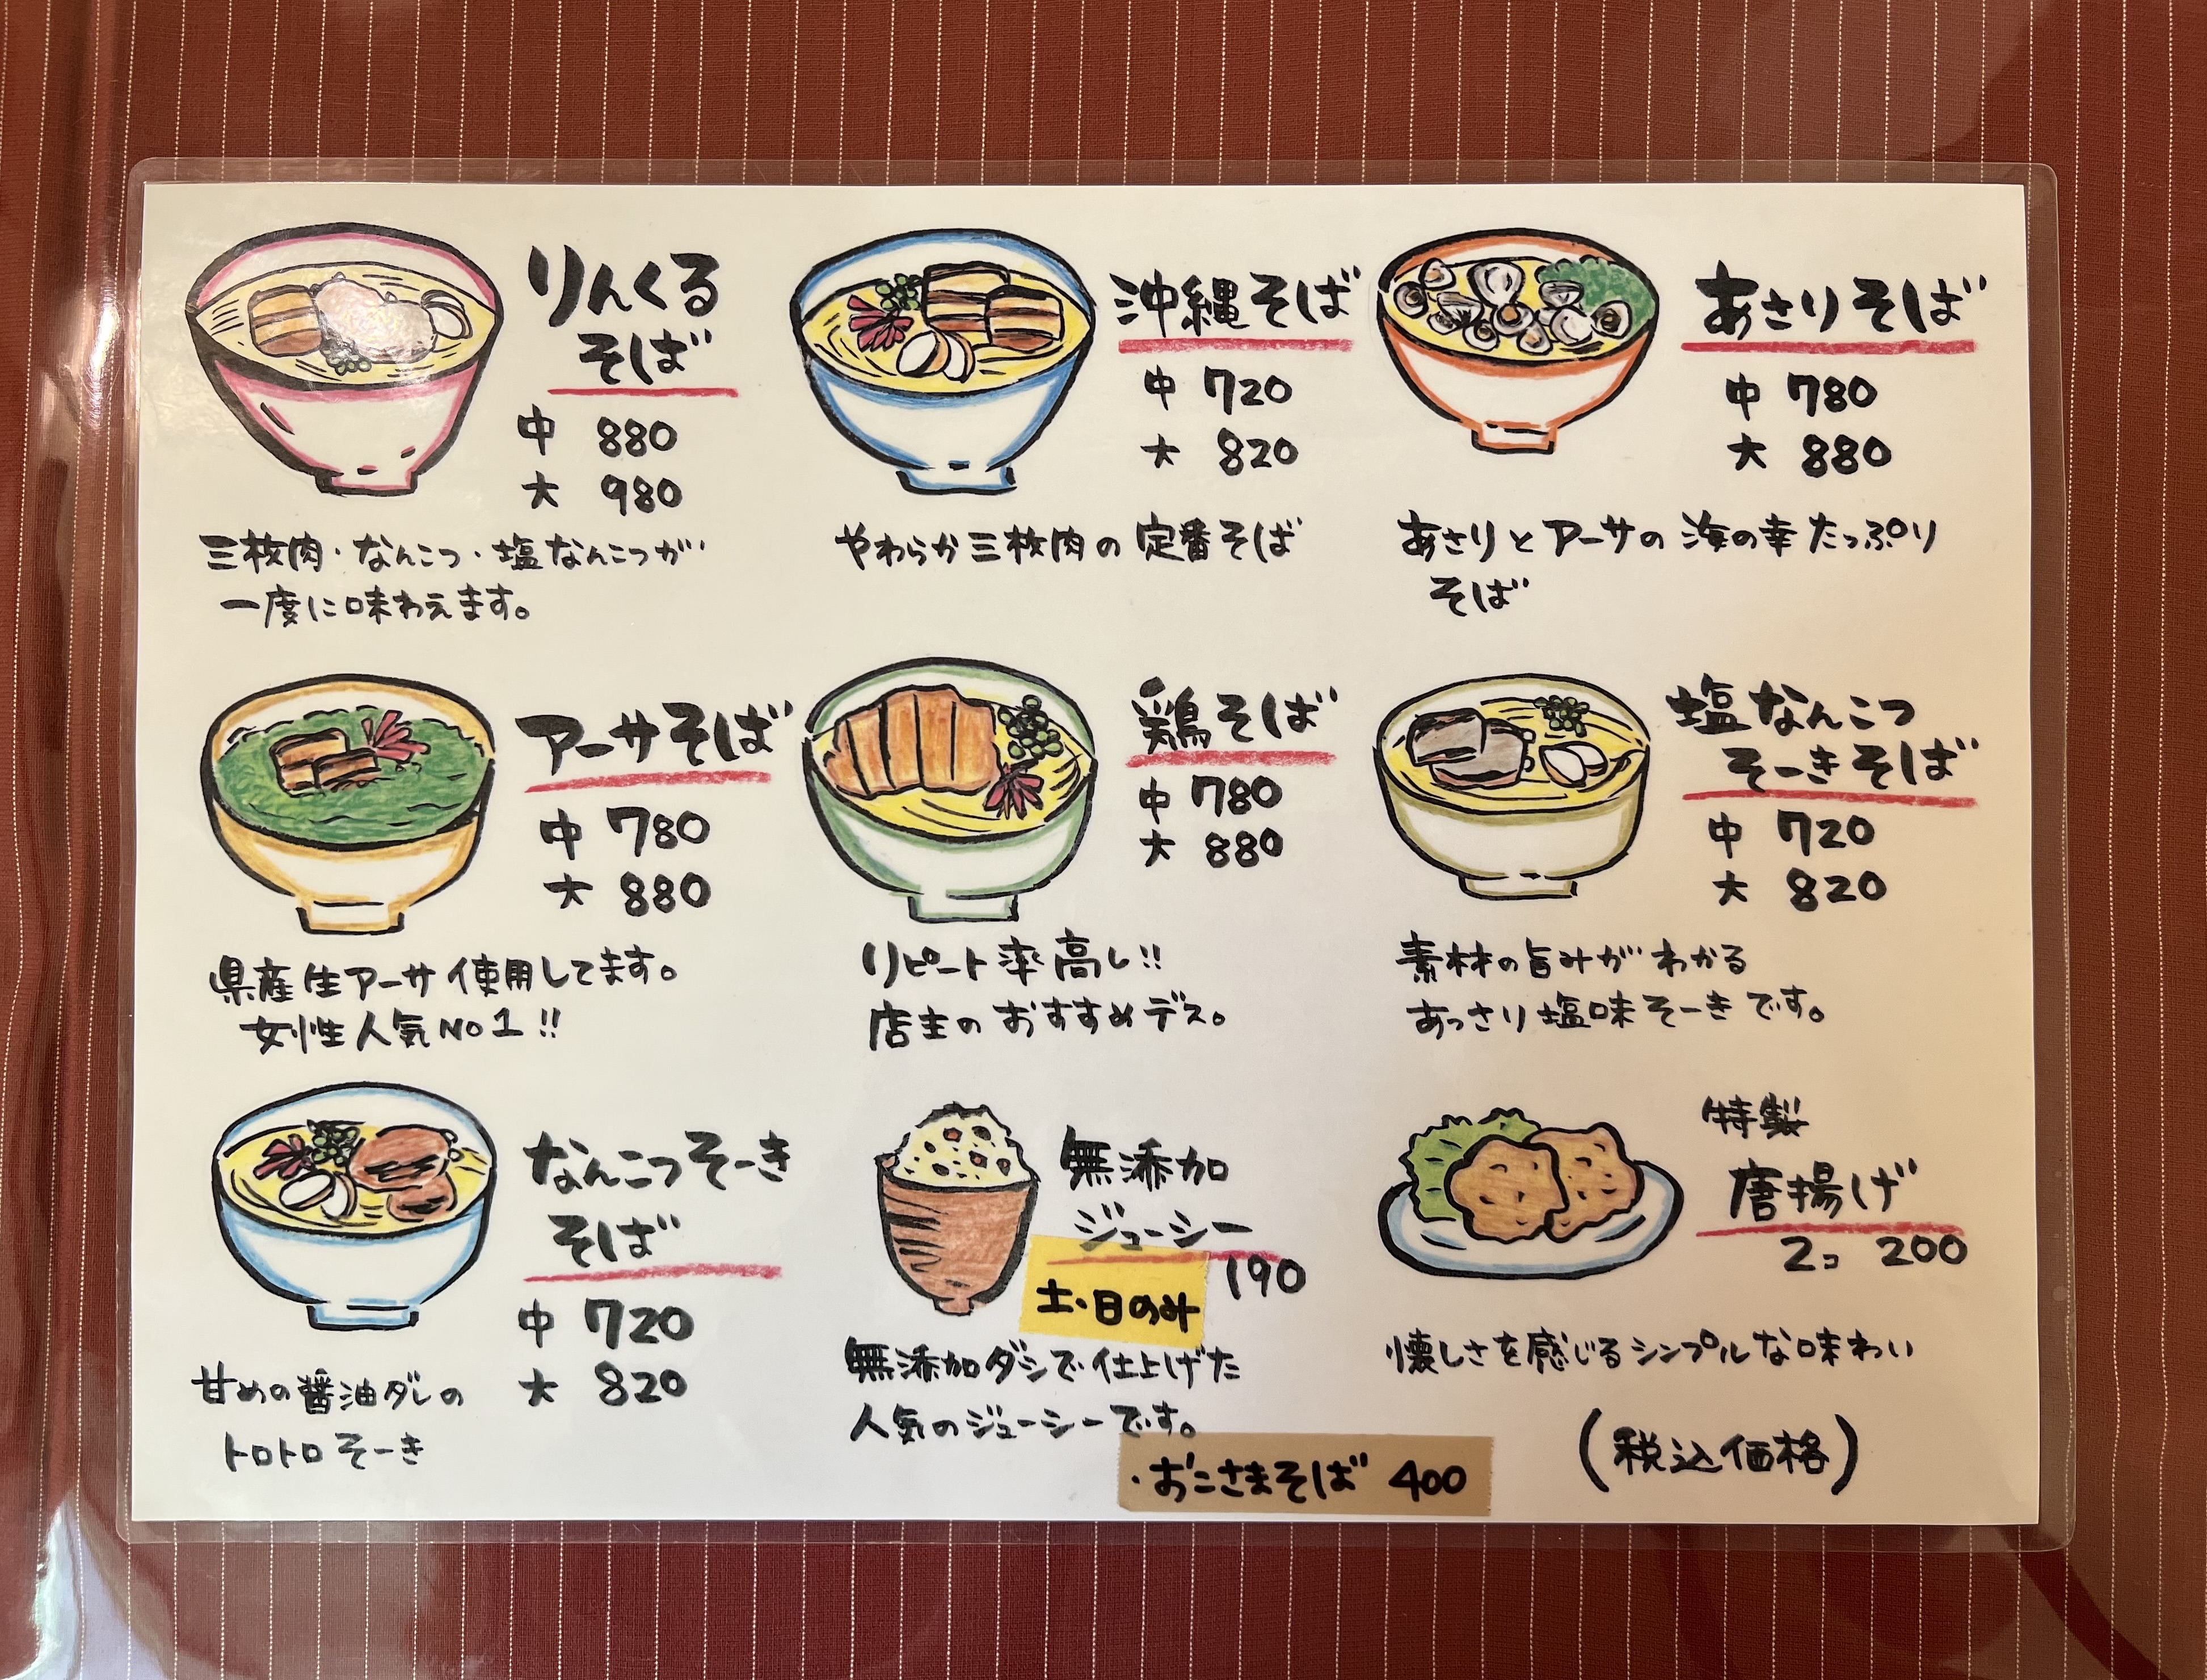 りんくる
そば
中 880
大 980
三枚肉・なんこつ・塩なんこつが
一度に味わえます。
沖縄そば
中 720
大 820
やわらか三枚肉の定番そば
あさりそば
中 780
大 880
あさりとアーサの海の幸たっぷり
そば
アーサそば
中 780
大 880
県産生アーサ使用してます。
女性人気No1!!
鶏そば
中 780
大 880
リピート率高し!!
店主のおすすめデス。
塩なんこつ
そーきそば
中 720
大 820
素材の旨みがわかる
あっさり塩味そーきです。
なんこつそーき
そば
中 720
大 820
甘めの醤油ダレの
トロトロそーき
無添加
ジューシー
190
土・日のみ
無添加ダシで仕上げた
人気のジューシーです。
・おこさまそば 400
特製
唐揚げ
2コ 200
懐しさを感じるシンプルな味わい
(税込価格)